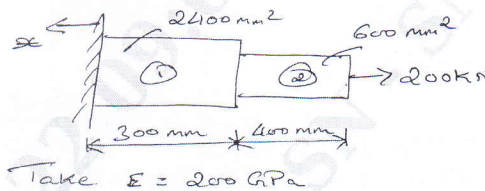 x
2400mm²
600 mm²
①
②
200KN
300mm
400mm
Take E = 200 GPa